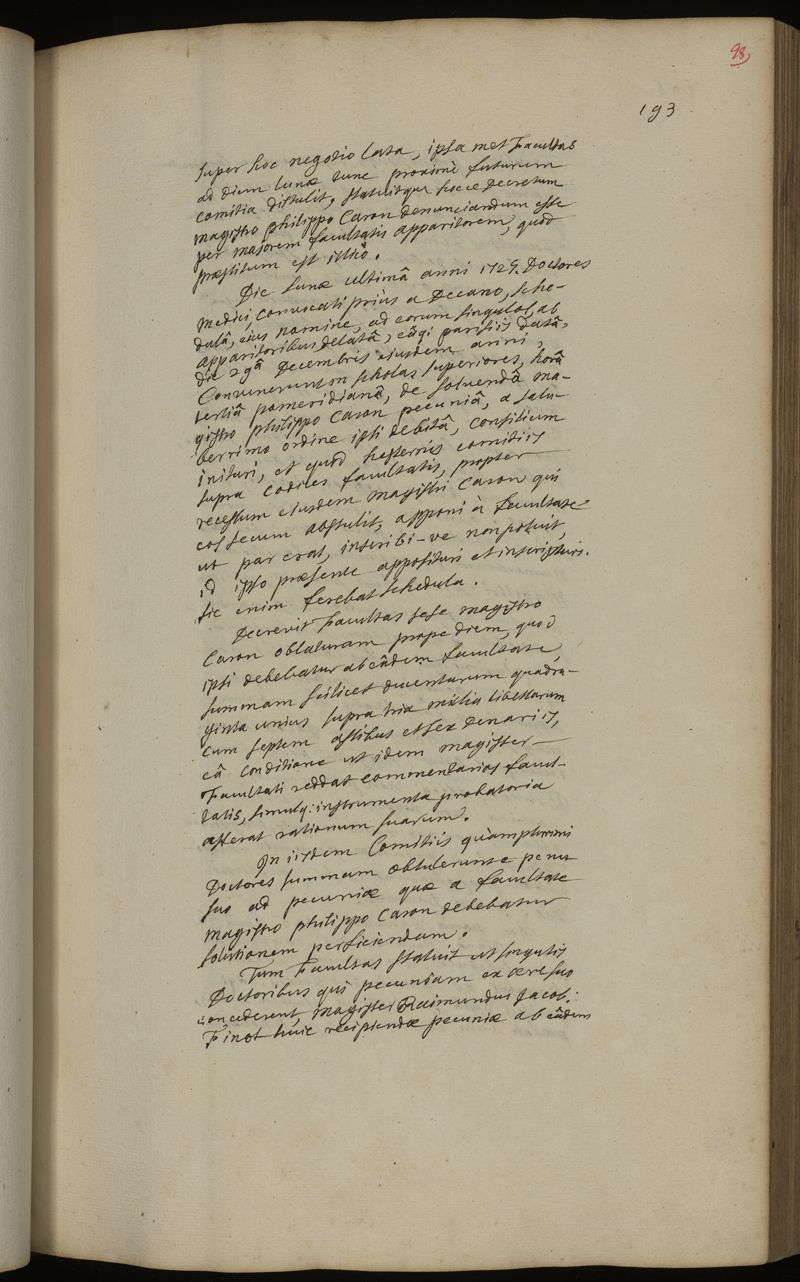 98
193
super hoc negotio lata, ipsa met Facultas
ad diem lunæ tunc proximè futurum
comitia distulit, statuitque hocce decretum
magistro philippo Caron denunciandum esse
per majorem facultatis apparitorem, quod
præstitum est illicò.
Die lunæ ultimâ anni 1729. Doctores
medici, convocati priùs a Decano, sche-
dulâ, ejus nomine, ad eorum singulos, ab
apparitoribus delatâ, parisiis datâ,
die 2gâ Decembris ejusdem anni,
Convenerunt in scholas superiores, horâ
tertiâ pomeridianâ, de solvendâ ma-
gistro philippo Caron pecuniâ, a salu-
berrimo ordine ipsi debitâ, consilium
inituri, et quod hesternis comitiis
supra codices facultatis, propter
recessum ejusdem magistri Caron qui
eos secum abstulit, apponi à facultate
ut par erat, inscribi-ve non potuit,
id ipso præsente apposituri et inscripturi.
sic enim ferebat schedula.
Decrevit Facultas sese magistro
Caron oblaturam prope diem, quod
ipsi debebatur ab eâdem facultate,
summam scilicet ducentarum quadra-
ginta unius supra tria millia libellarum
cum septem assibus et sex denariis,
eâ conditione ut idem magister
Facultati reddat commentarios facul-
tatis, simulq: instrumenta probatoria
afferat rationum suarum.
In iisdem Comitiis quàmplurimi
Doctores summam obtulerunt e penu
suo ad pecuniæ quæ a facultate
magistro philippo Caron debebatur
solutionem perficiendam.
Tum Facultas statuit ut singulis
Doctoribus qui pecuniam ex ære suo
concederent, magister Raimundus Jacob:
Finot huic recipiendæ pecuniæ ab eâdem